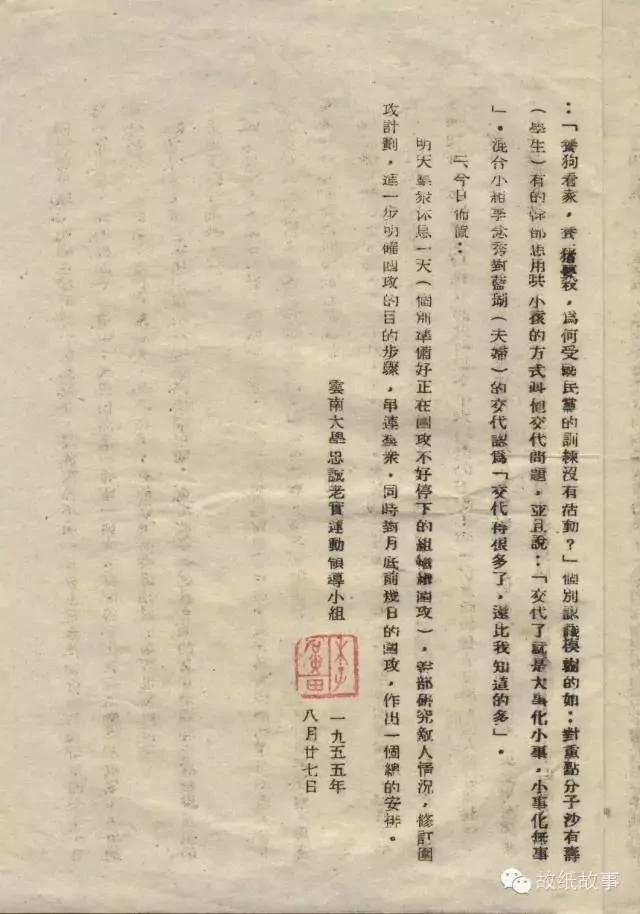 ：「養狗看家，養猪吃殺，爲何受國民黨的訓練沒有活動？」個別認識模糊的如：對重點分子沙有壽
（學生）有的幹部思用哄小孩的方式叫他交代問題，並且說：「交代了就是大事化小事，小事化無事
」。混合小組李念秀對藍瑚（夫婦）的交代認爲「交代得很多了，遠比我知道的多」。
二、今日佈置：
明天羣衆休息一天（個別準備好正在圍攻不好停下的組繼續圍攻），幹部研究敵人情況，修訂圍
攻計劃，進一步明確圍攻的目的步驟，串連羣衆，同時對月底前幾日的圍攻，作出一個總的安排。
雲南大學忠誠老實運動領導小組
一九五五年
八月廿七日
故纸故事